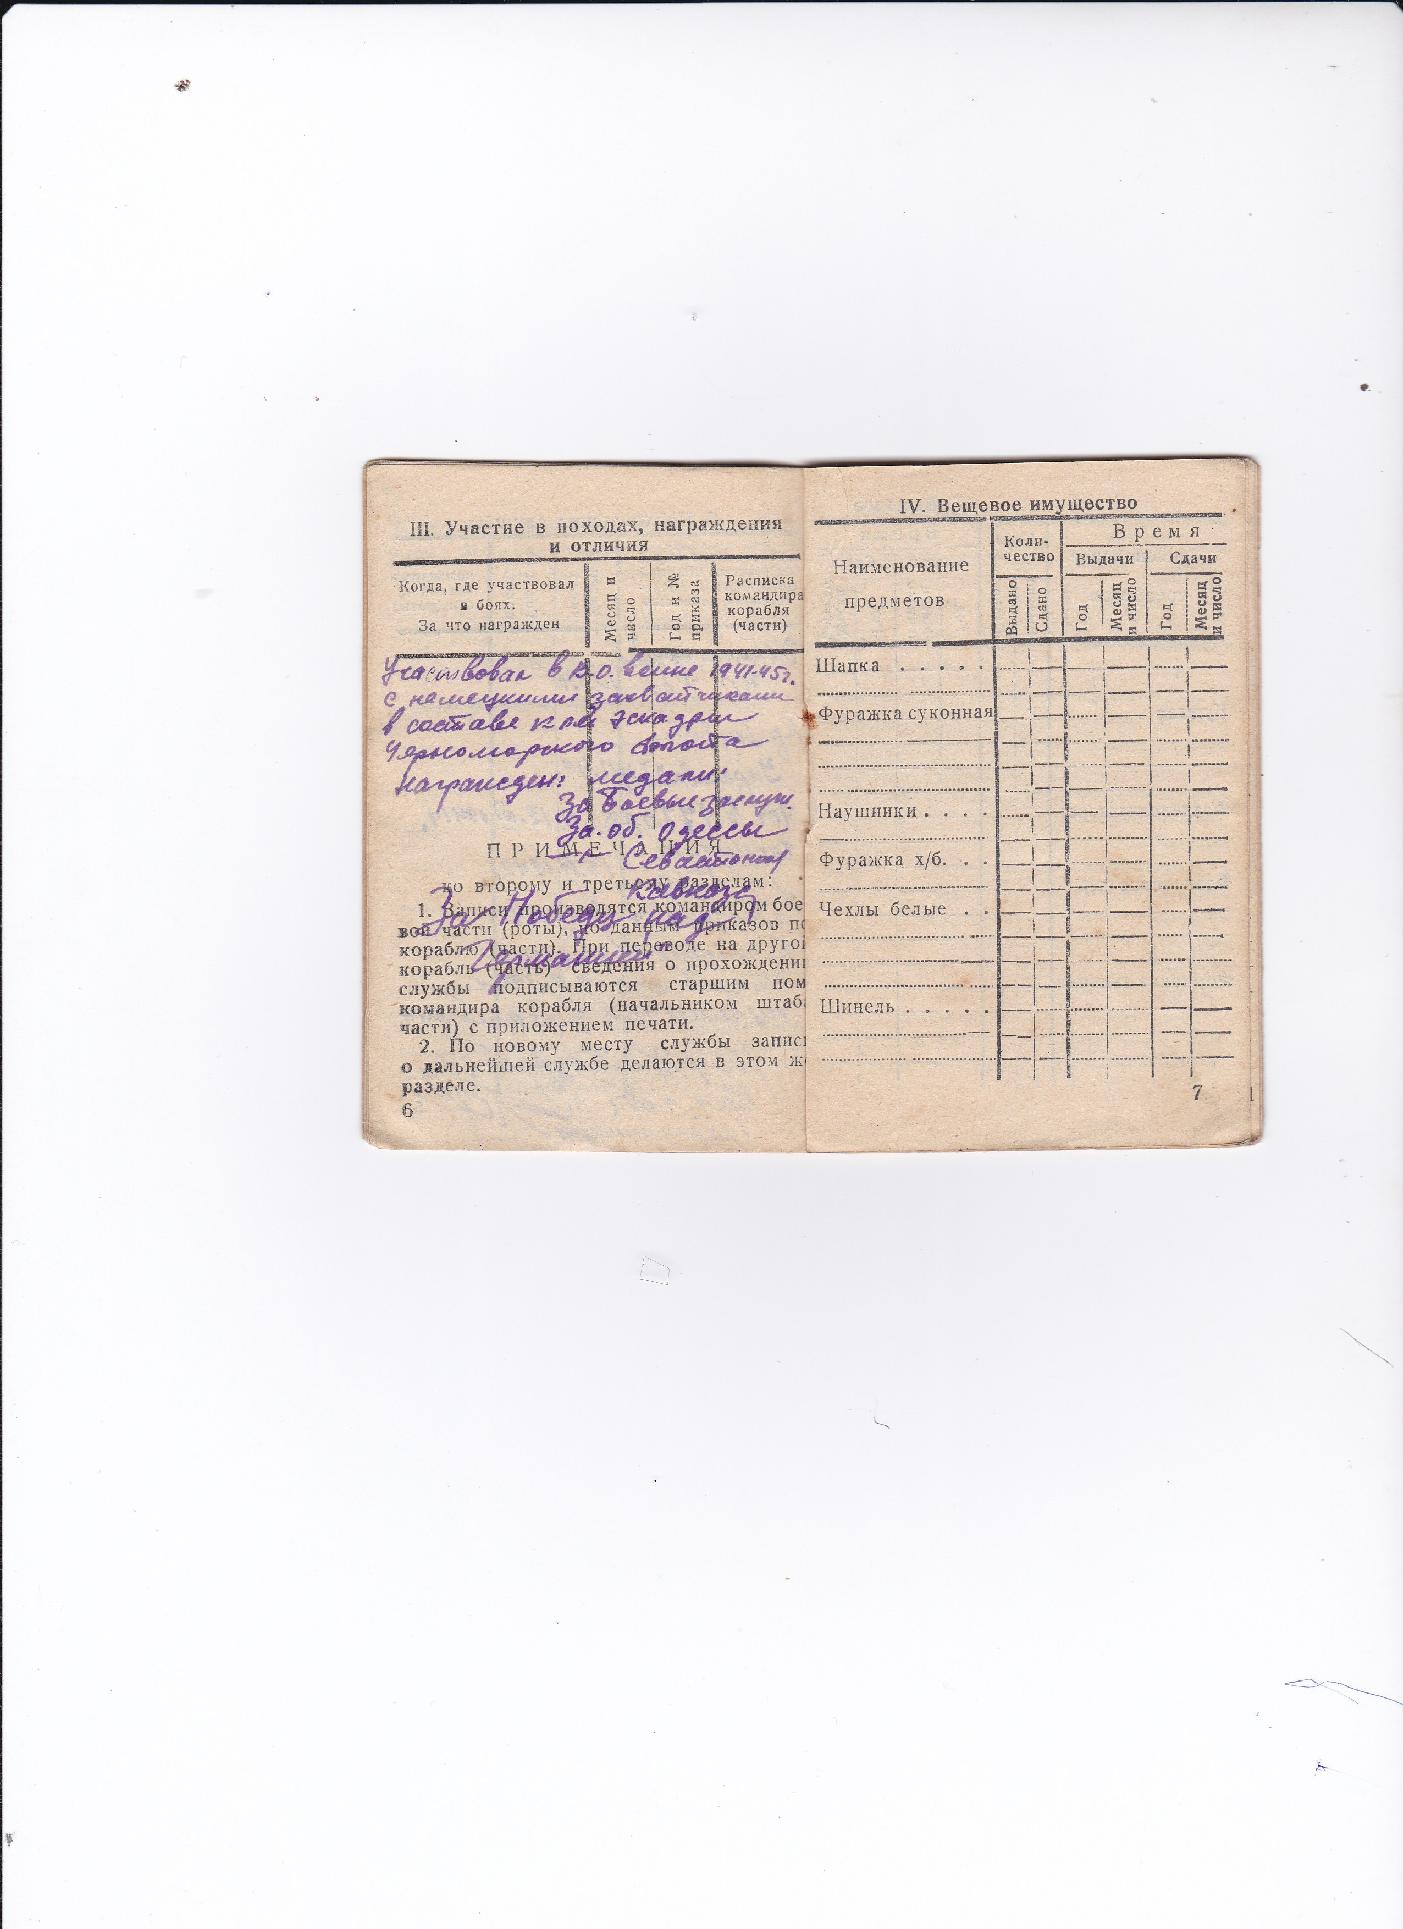 III. Участие в походах, награждения
и отличия
Когда, где участвовал
в боях.
За что награжден
Месяц и
число
Год и №
приказа
Расписка
командира
корабля
(части)
Участвовал в В.О. войне 1941-45г.
с немецкими захватчиками
в составе кр-ей эскадры
Черноморского флота
Награжден: медали:
За Боевые заслуги.
За об. Одессы
Севастополя
Кавказа
За Победу над
Германией
ПРИМЕЧАНИЯ
ко второму и третьему разделам:
1. Записи производятся командиром бое
вой части (роты), по данным приказов по
кораблю (части). При переводе на другой
корабль (часть) сведения о прохождении
службы подписываются старшим пом
командира корабля (начальником штаба
части) с приложением печати.
2. По новому месту службы запис
о дальнейшей службе делаются в этом ж
разделе.
6
IV. Вещевое имущество
Наименование
предметов
Коли-
чество
Время
Выдачи
Сдачи
Выдано
Сдано
Год
Месяц
и число
Год
Месяц
и число
Шапка . . . . .
Фуражка суконная
Наушники . . . .
Фуражка х/б. . .
Чехлы белые . .
Шинель . . . . .
7